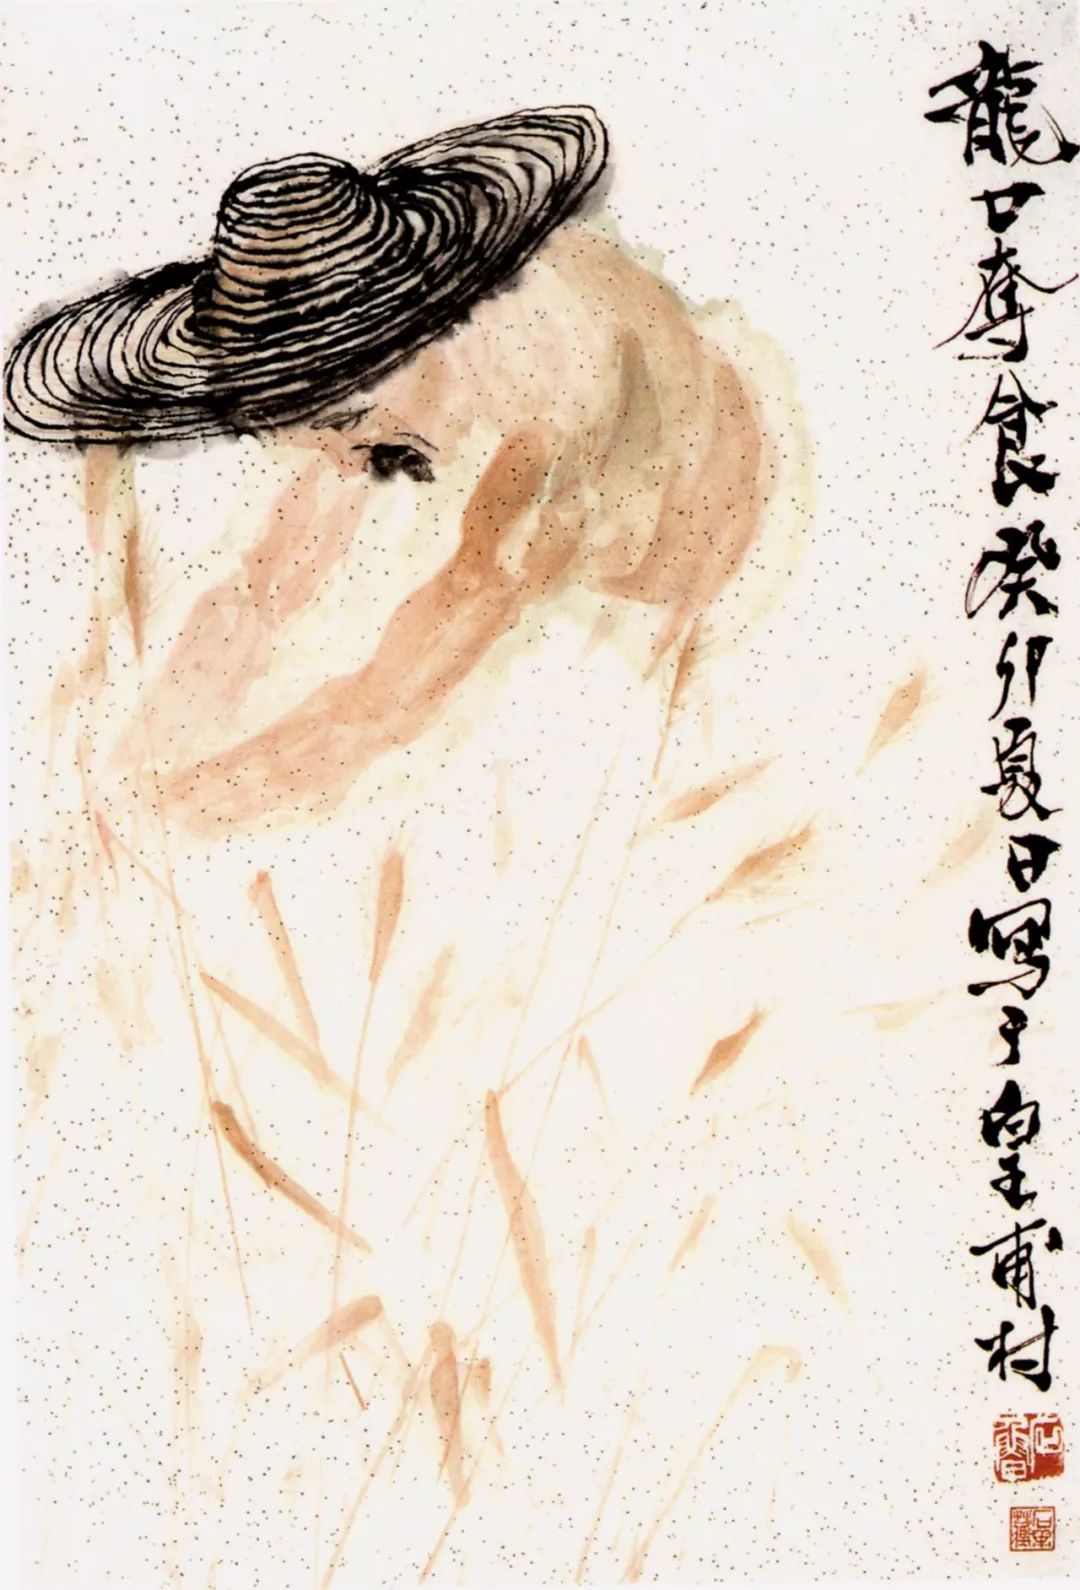 龍口奪食癸卯夏日寫于皇甫村